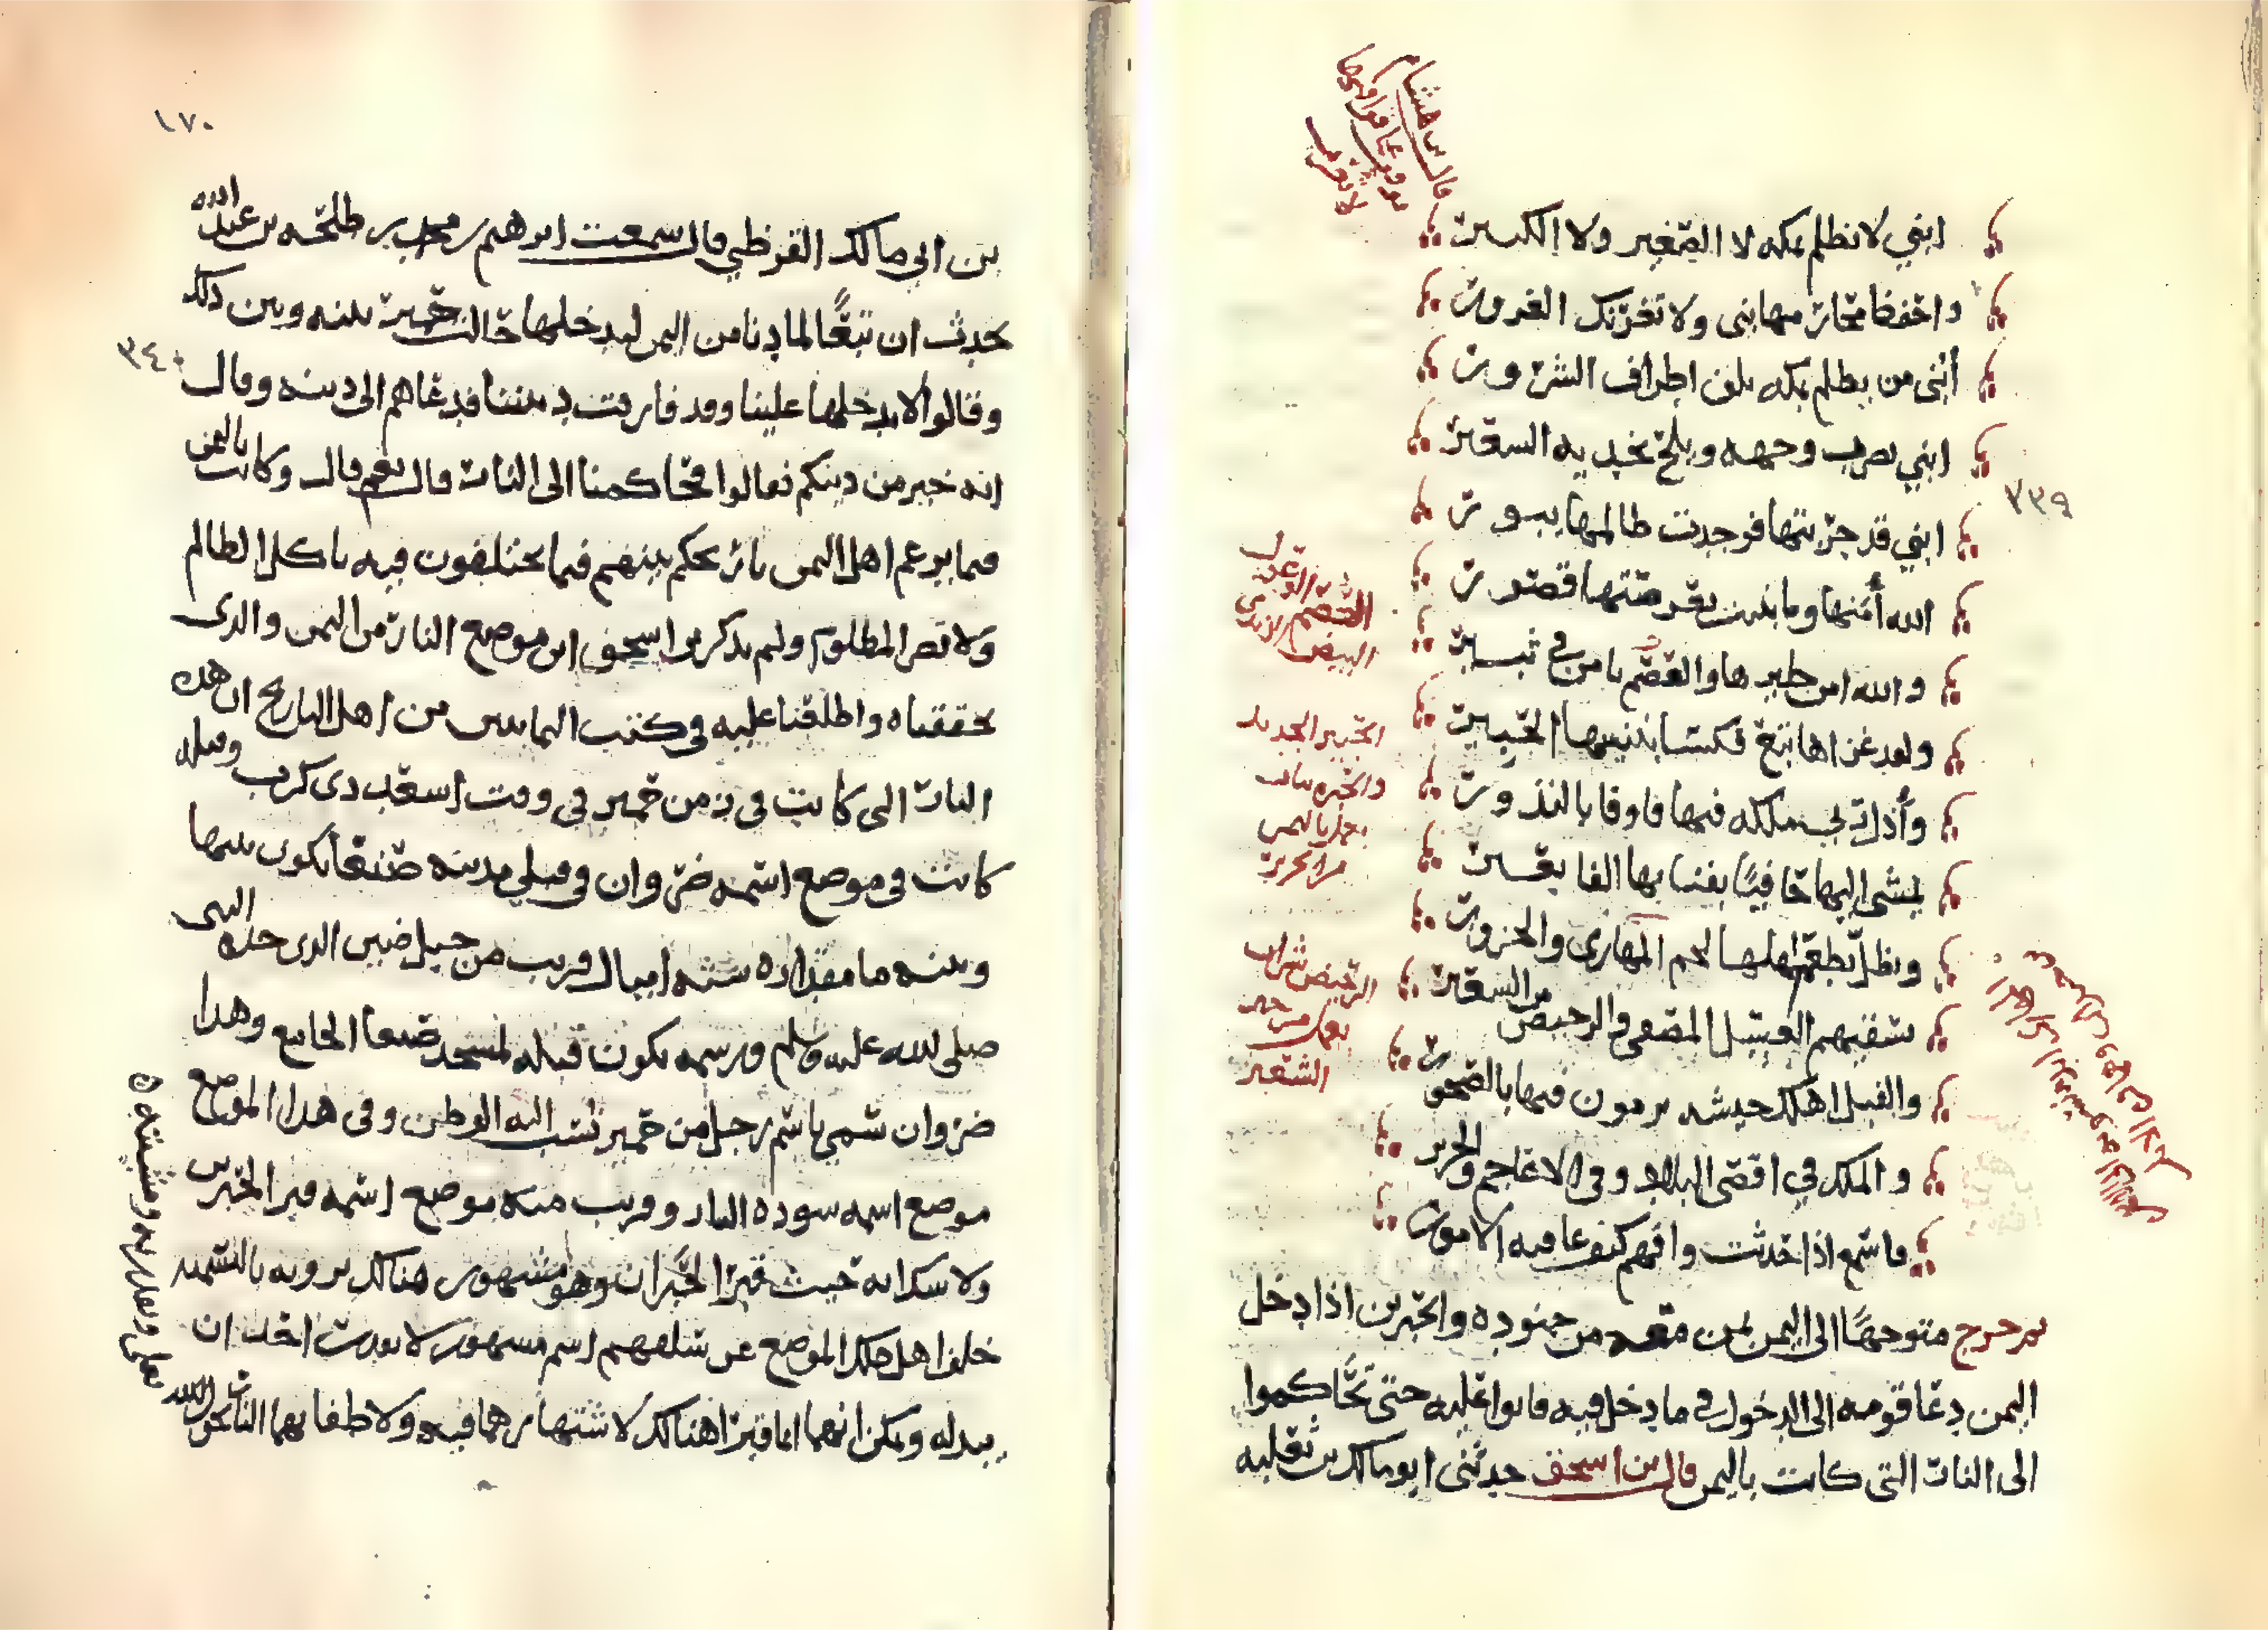 ابني لا تظلم بمكه لا الصغير ولا الكبير
واحفظ محارمها بني ولا تغرنك الغرور
أبني من يظلم بمكه يلق اطراف الشرور
ابني يضرب وجهه ويلح بخديه السعير
ابني قد جربتها فوجدت ظالمها يبور
الله أمنها وما بنيت بعرصتها قصور
والله امن طيرها والعصم تامن في ثبير
ولقد غزاها تبع فكسا بنيتها الحبير
وأذل ربي ملكه فيها فاوفا بالنذور
يمشي اليها حافيا بفنايها الفا بعير
ويظل يطعم اهلها لحم المهارى والجزور
يسقيهم العسل المصفى والرحيض من السعير
والفيل اهلك جيشه يرمون فيها بالصخور
والملك في اقصى البلاد وفي الاعاجم والخزير
فاسمع اذا حدثت وافهم كيف عاقبه الامور
ثم خرج متوجها الى اليمن بمن معه من جنوده والحبرين اذا دخل
اليمن دعا قومه الى الدخول في ما دخل فيه فابوا عليه حتى تحاكموا
الى النار التي كانت باليمن قال بن اسحق حدثني ابو مالك بن ثعلبه
٣٣٩
قال بن هشام
العصم الوعول
البيض
الحبير الجديد
والحبره ثياب
يعمل باليمن
من الحرير
الرحيض شراب
يعمل من خبز
الشعير
١٧٠
بن ابي مالك القرظي قال سمعت ابرهيم بن محمد بن طلحه بن عبد الله
يحدث ان تبعا لما دنا من اليمن ليدخلها حالت حمير بينه وبين ذلك
وقالوا لا يدخلها علينا وقد فارقت ديننا فدعاهم الى دينه وقال
٣٤٠
انه خير من دينكم فقالوا فحاكمنا الى النار قال نعم قال وكانت باليمن
فيما يزعم اهل اليمن نار تحكم بينهم فيما يختلفون فيه تاكل الظالم
ولا تضر المظلوم ولم يذكر بن اسحق اين موضع النار من اليمن والذي
تحققناه واطلعنا عليه في كتب اليمانيين من اهل التاريخ ان هذه
النار التي كانت في زمن حمير في وقت اسعد ذي كرب وقبله
كانت في موضع اسمه ضروان في قبلي مدينه صنعا يكون بينها
وبينه ما مقداره سته اميال قريب من جبل ضين الذي حده النبي
صلى الله عليه وسلم ورسمه يكون قبله لمسجد صنعا الجامع وهذا
ضروان سمي باسم رجل من حمير نسب اليه الوطن وفي هذا الموضع
موضع اسمه سوده النار وقريب منه موضع اسمه قبر الحبرين
ولا شك انه حيث قبر الحبران وهو مشهور هناك يروونه بالتسميه
خلف اهل ذلك الموضع عن سلفهم اسم مشهور لا يقدر احد ان
يبدله ويمكن انهما انما قبرا هنالك لاشتهارهما فيه ولاطفايهما النار بحول الله
تعالى وبقدرته ومشيئته